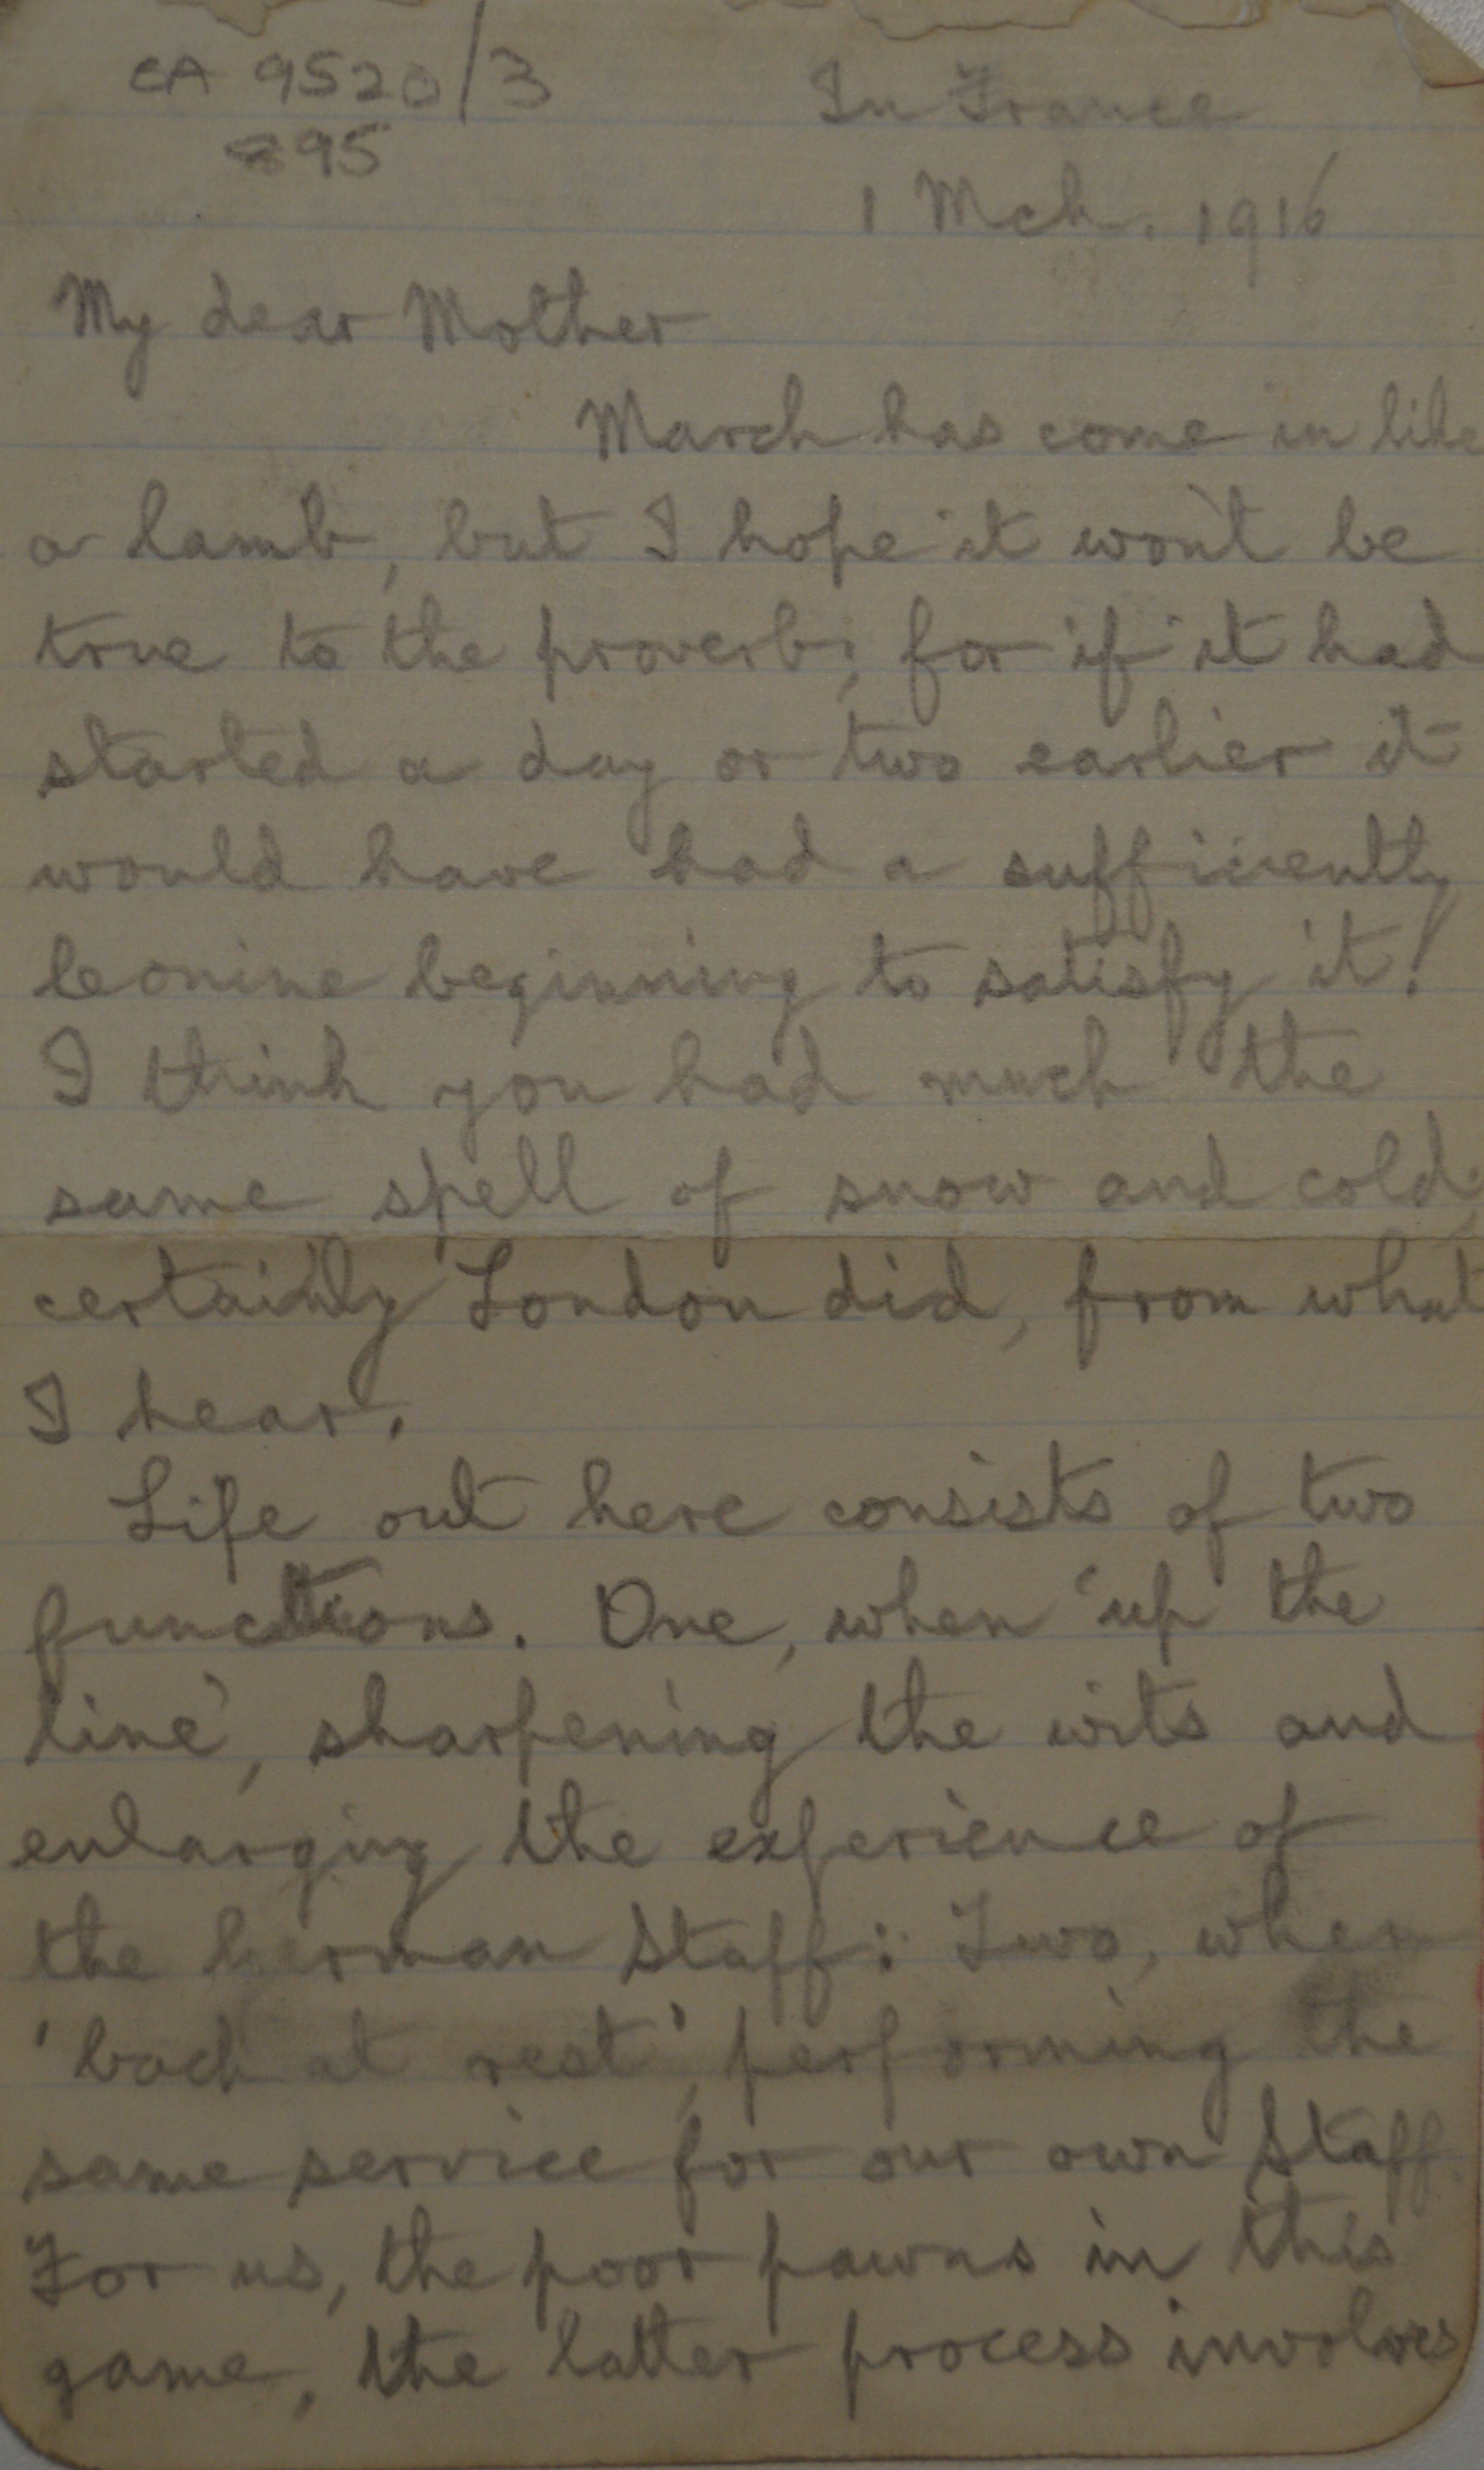 CA 9520/3
895
In France
1 Mch. 1916
My dear Mother
March has come in like
a lamb, but I hope it won't be
true to the proverb; for if it had
started a day or two earlier it
would have had a sufficiently
leonine beginning to satisfy it!
I think you had much the
same spell of snow and cold;
certainly London did, from what
I hear.
Life out here consists of two
functions. One, when 'up the
line', sharpening the wits and
enlarging the experience of
the German Staff: Two, when
'back at rest', performing the
same service for our own Staff.
For us, the poor pawns in this
game, the latter process involves